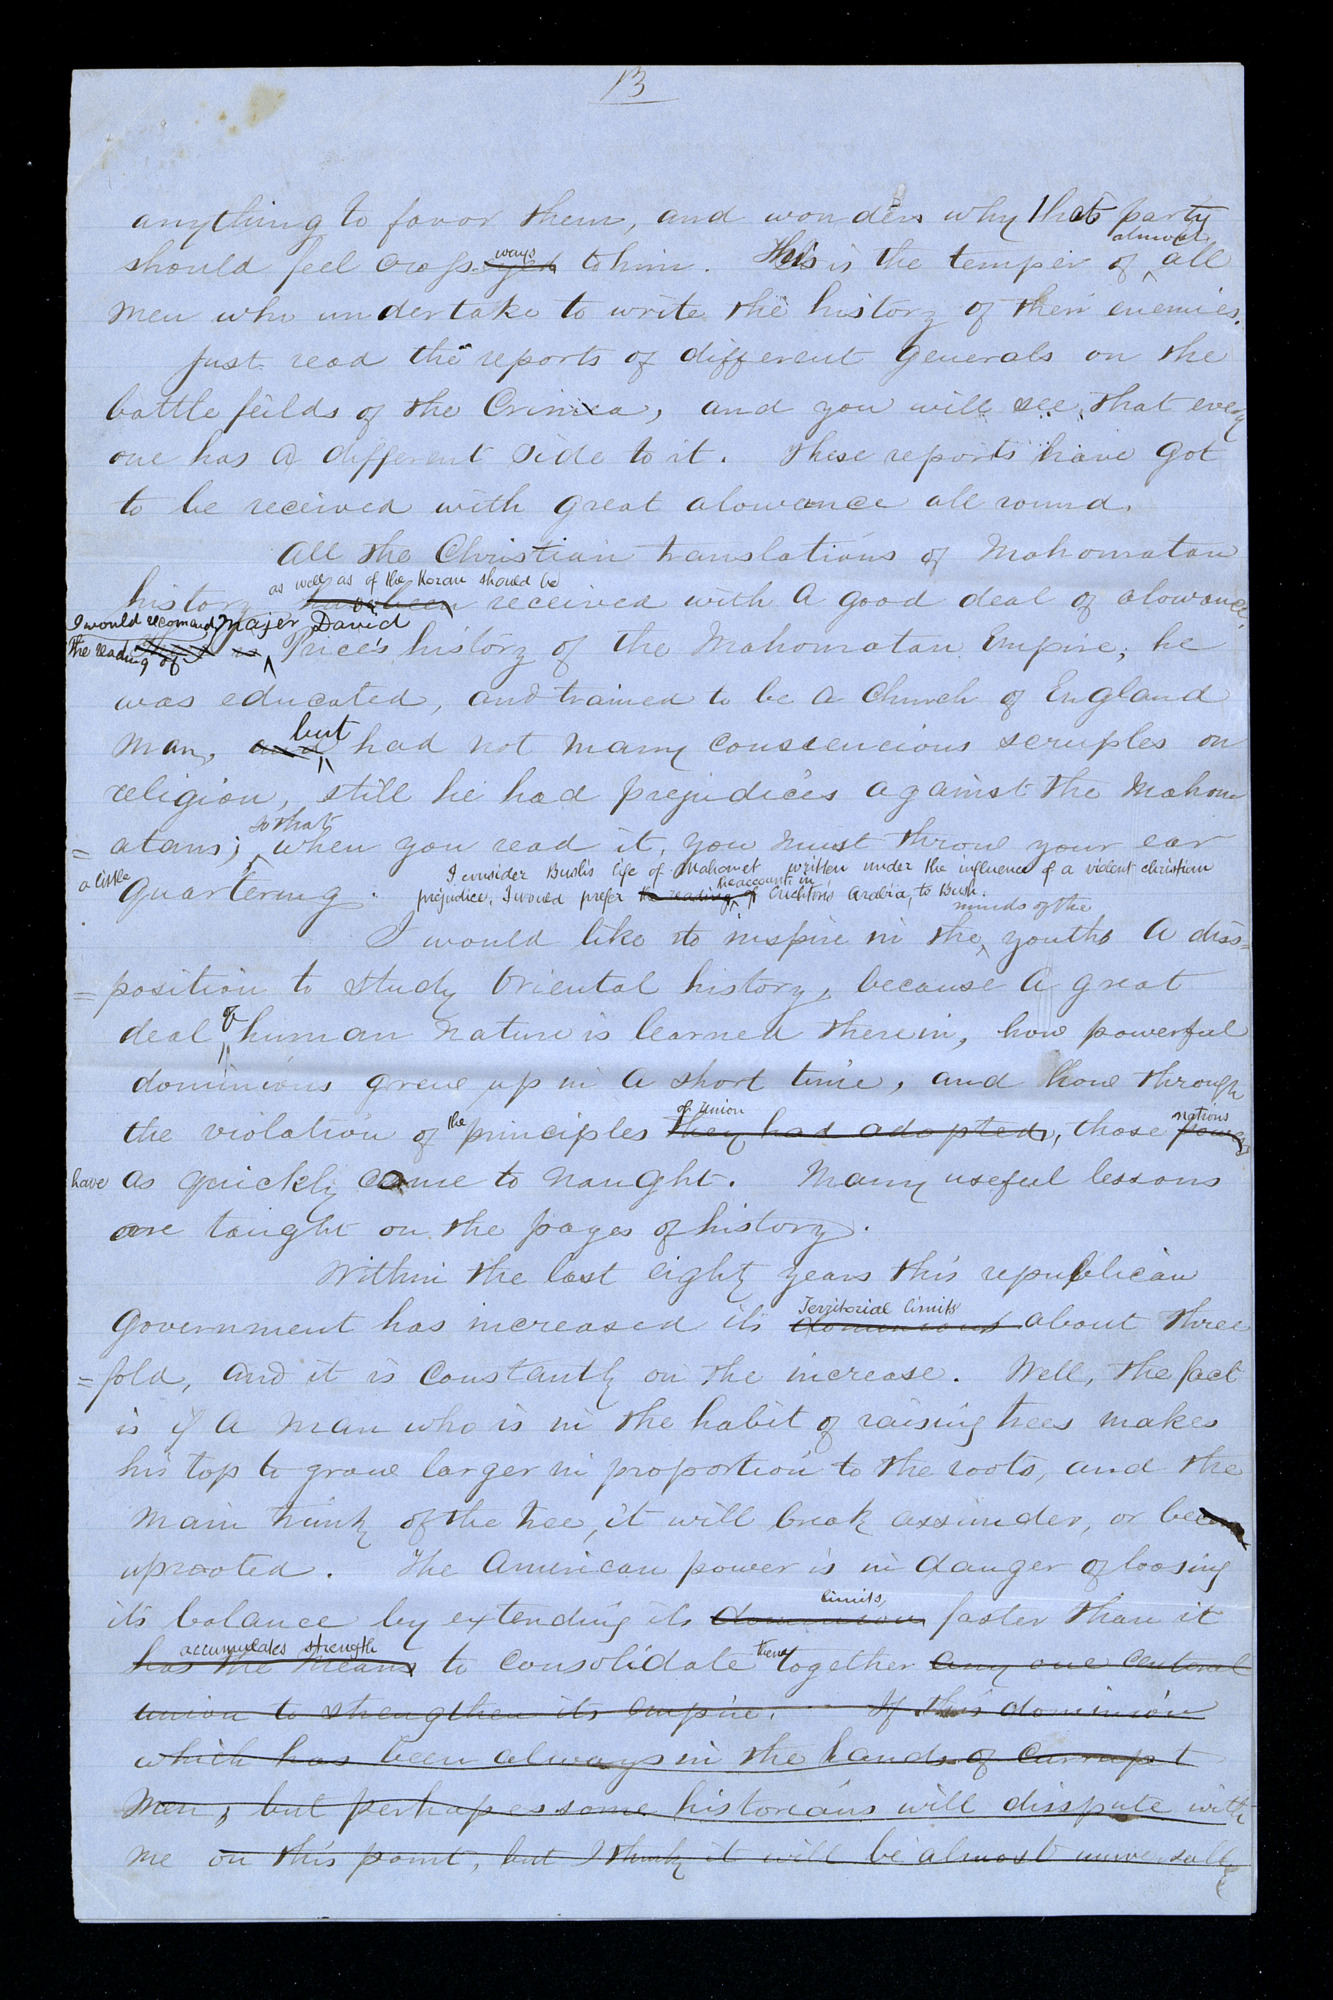 13
anything to favor them, and wonders why that party
almost
should feel cross eyed ways to him. This is the temper of ^ all
men who undertake to write the history of their enemies.
Just read the reports of different Generals on the
battle feilds of the Crimea, and you will see, that every
one has a different side to it. These reports have got
to be received with great alowance all round.
All the Christian translations of Mahomatan
as well as of the Koran should be
history has been received with a good deal of alowance.
I would recomend Major David
the reading of ^ Price's history of the Mahomatan Empire, he
was educated, and trained to be a Church of England
but
man, and ^ had not many consciencious scruples on
religion, still he had prejudices against the Mahom
so that
= atans; ^ when you read it, you must throw your ear
a little quartering. I consider Bush's life of Mahomet written under the influence of a violent christian
prejudice, I would prefer the reading of ^ the account in Crichton's Arabia, to Bush.
minds of the
I would like to inspire in the ^ youths a diss=
= position to study Oriental history, because a great
deal ^ of human nature is learned therein, how powerful
dominions grew up in a short time, and how through
of Union
the violation of the principles they had adopted, those powers nations
have as quickly come to naught. Many useful lessons
are taught on the pages of history.
Within the last eighty years this republican
Territorial limits
Government has increased its dominions about three
= fold, and it is constantly on the increase. Well, the fact
is if a man who is in the habit of raising trees makes
his top to grow larger in proportion to the roots, and the
main trunk of the tree, it will break assunder, or be
uprooted. The American power is in danger of loosing
limits,
its balance by extending its dominion faster than it
accumulates strength
has the means to consolidate them together any one centeral
union to strengthen its empire. If this dominion
which has been always in the hands of currupt
men, but perhapes some historians will disspute with
me on this point, but I think it will be almost universally